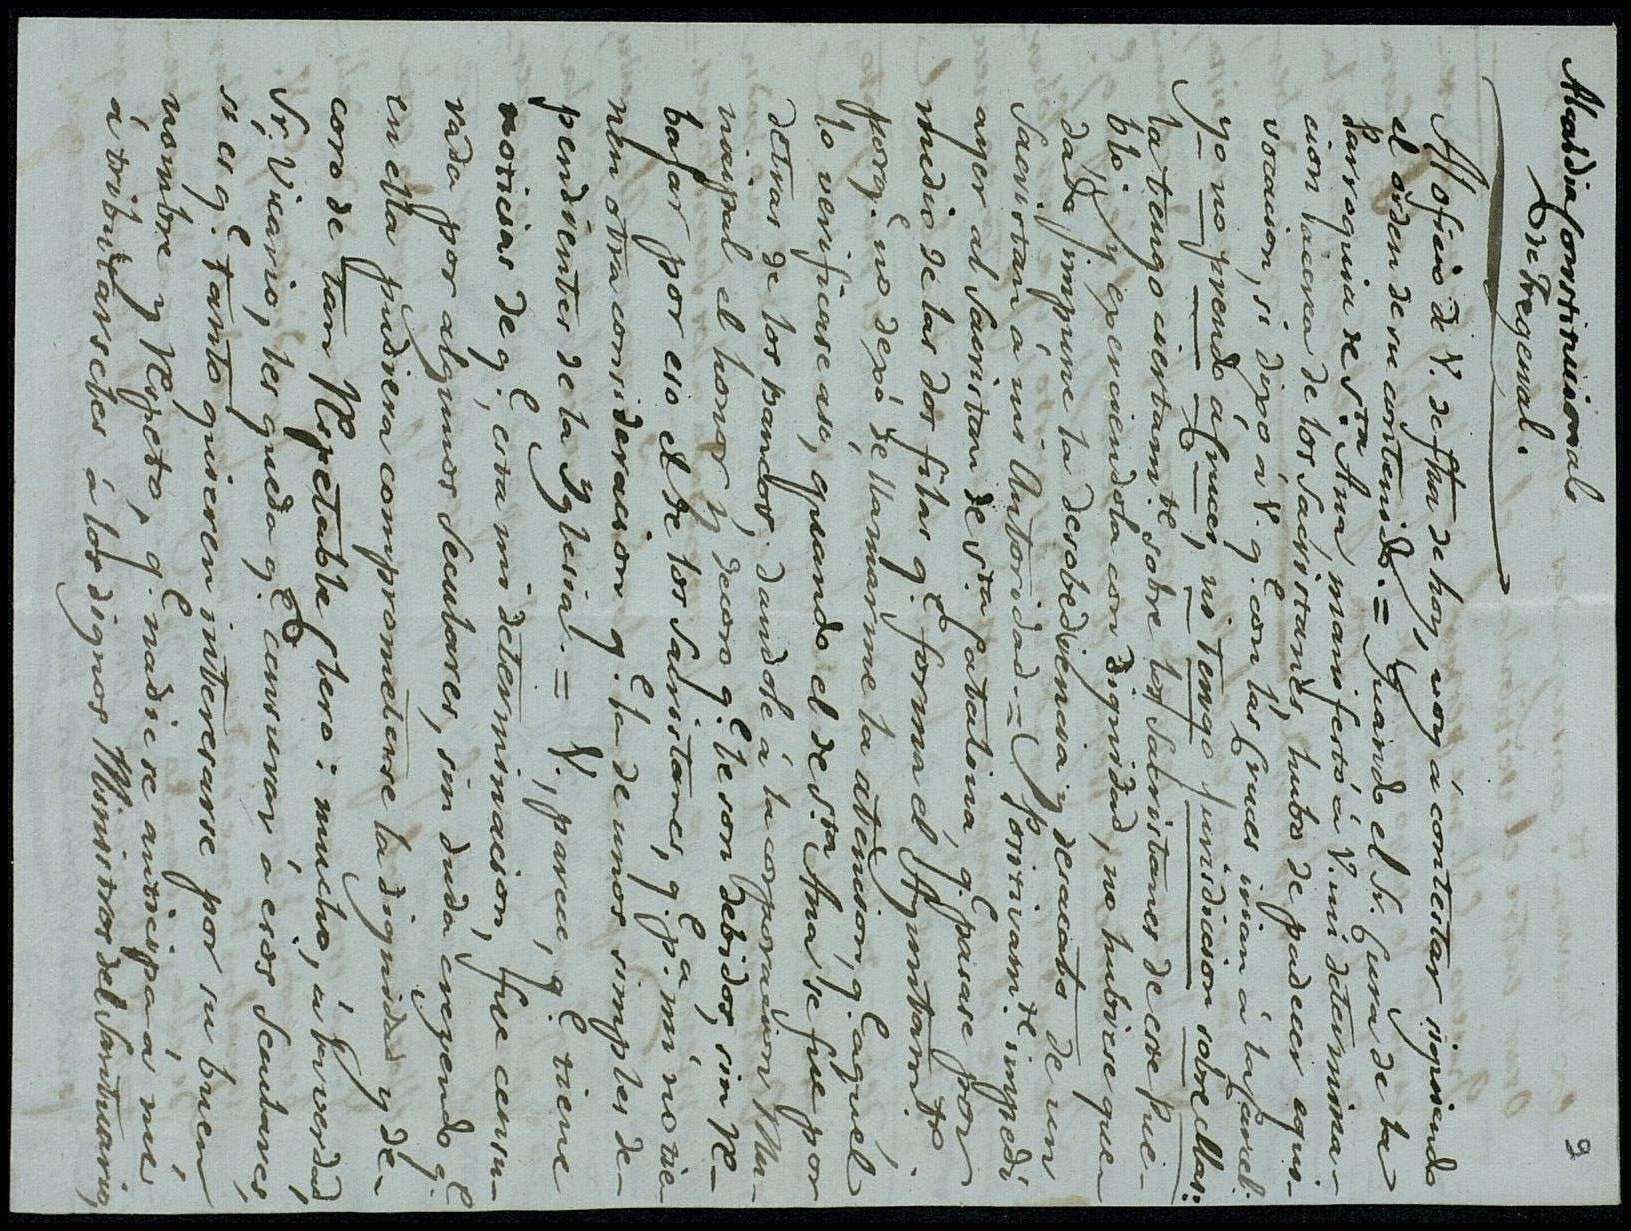 9
Alcaldia Constitucional
de Fregenal.
Al oficio de V. de fha de hoy, voy á contestar siguiendo
el orden de su contenido. = Quando el Sr. Cura de la
Parroquia de Sta Ana manifestó á V. mi determina-
cion hácerca de los Sacristanes, hubo de padecer equi-
vocacion, si dijo á V. q.e con las Cruces irian á la Carcel:
yo no prendo á Cruces, ni tengo juridicion sobre ellas:
la tengo ciertam.te sobre los Sacristanes de este Pue-
blo, y exerciendola con dignidad, no hubiese que-
dado impune la desobediencia y desacato de un
Sacristan á mi Autoridad. = Positivam.te impedí
ayer al Sacristan de Sta Catalina, q.e pasase por
medio de las dos filas q.e forma el Ayuntam.to
porq.e no dejó de llamarme la atencion, q.e aquél
lo verificase así, quando el de Sta Ana se fue por
detras de los bancos, dandole á la corporacion Mu-
nicipal el honor y decoro q.e le son debidos, sin re-
bajar por eso el de los Sacristanes, q.e p.a mí no tie-
nen otra consideracion q.e la de unos simples de-
pendientes de la Yglesia. = V., parece, q.e tiene
noticias de q.e, esta mi determinacion, fue censu-
rada por algunos Seculares, sin duda creyendo q.e
en ella pudiera comprometerse la dignidad y de-
coro de tan Respetable Clero: mucho, á la verdad,
Sr. Vicario, les queda q.e censurar á esos Seculares,
si es q.e tanto quieren interesarse por su buen
nombre y respeto, q.e nadie se anticipa á mí
á tributarseles á los dignos Ministros del Santuario,